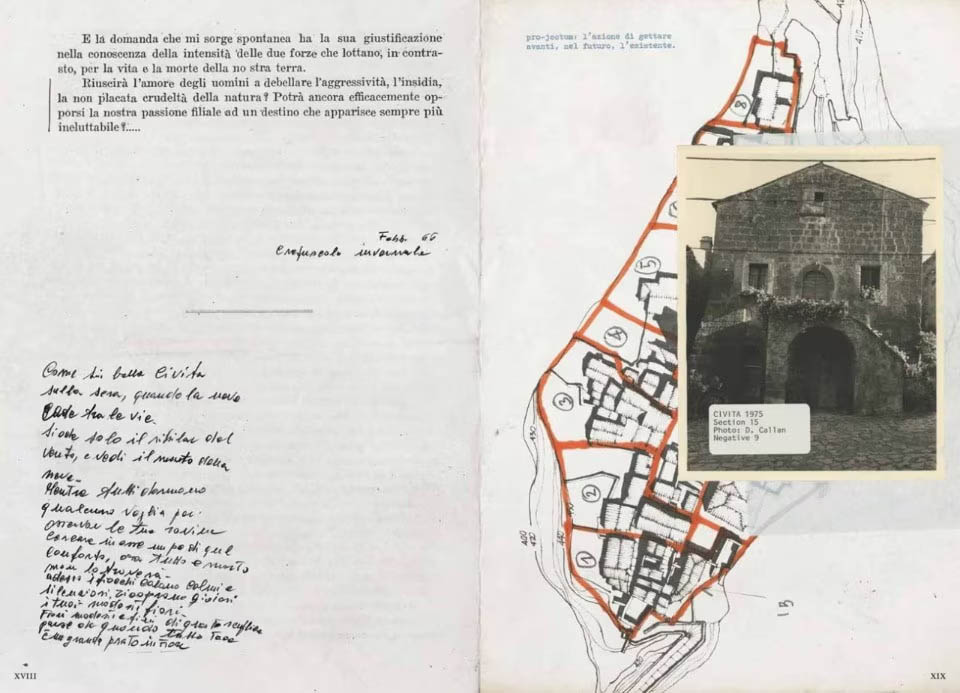 E la domanda che mi sorge spontanea ha la sua giustificazione
nella conoscenza della intensità delle due forze che lottano, in contra-
sto, per la vita e la morte della no stra terra.
Riuscirà l'amore degli uomini a debellare l'aggressività, l'insidia,
la non placata crudeltà della natura? Potrà ancora efficacemente op-
porsi la nostra passione filiale ad un destino che apparisce sempre più
ineluttabile?.....
Febb. 66
Crepuscolo invernale
Come sei bella Civita
sulla sera, quando la neve
cade tra le vie.
Si ode solo il sibilar del
vento, e vedi il manto della
neve.
Mentre tutti dormono
qualcuno veglia per
osservar le tue rovine
cercare in esse un po di quel
conforto, ora tutto è morto
non lo troverà.
adesso i fiocchi calano calmi e
silenziosi, ricoprono gioiosi
i tuoi modesti fiori.
Fiori modesti e
paese da quando di
tutto tace
è un grande prato in fiore
XVIII
pro-jectum: l'azione di gettare
avanti, nel futuro, l'esistente.
410
8
5
4
3
2
1
CIVITA 1975
Section 15
Photo: D. Callan
Negative 9
430
400
420
440
XIX